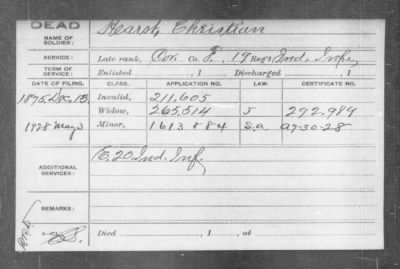 DEAD
NAME OF SOLDIER: Hearsh, Christian
SERVICE: Late rank, Cor. Co. F, 19 Reg't Ind. Inf.
TERM OF SERVICE: Enlisted , 1 Discharged , 1
DATE OF FILING. CLASS. APPLICATION NO. LAW. CERTIFICATE NO.
1875, Dec. Invalid, 211.605
Widow, 265.514 J 292.989
1928 May 3 Minor, 1613884 S.a. a7-30-28
ADDITIONAL SERVICES: E. 20 Ind. Inf.
REMARKS:
Died , 1 , at